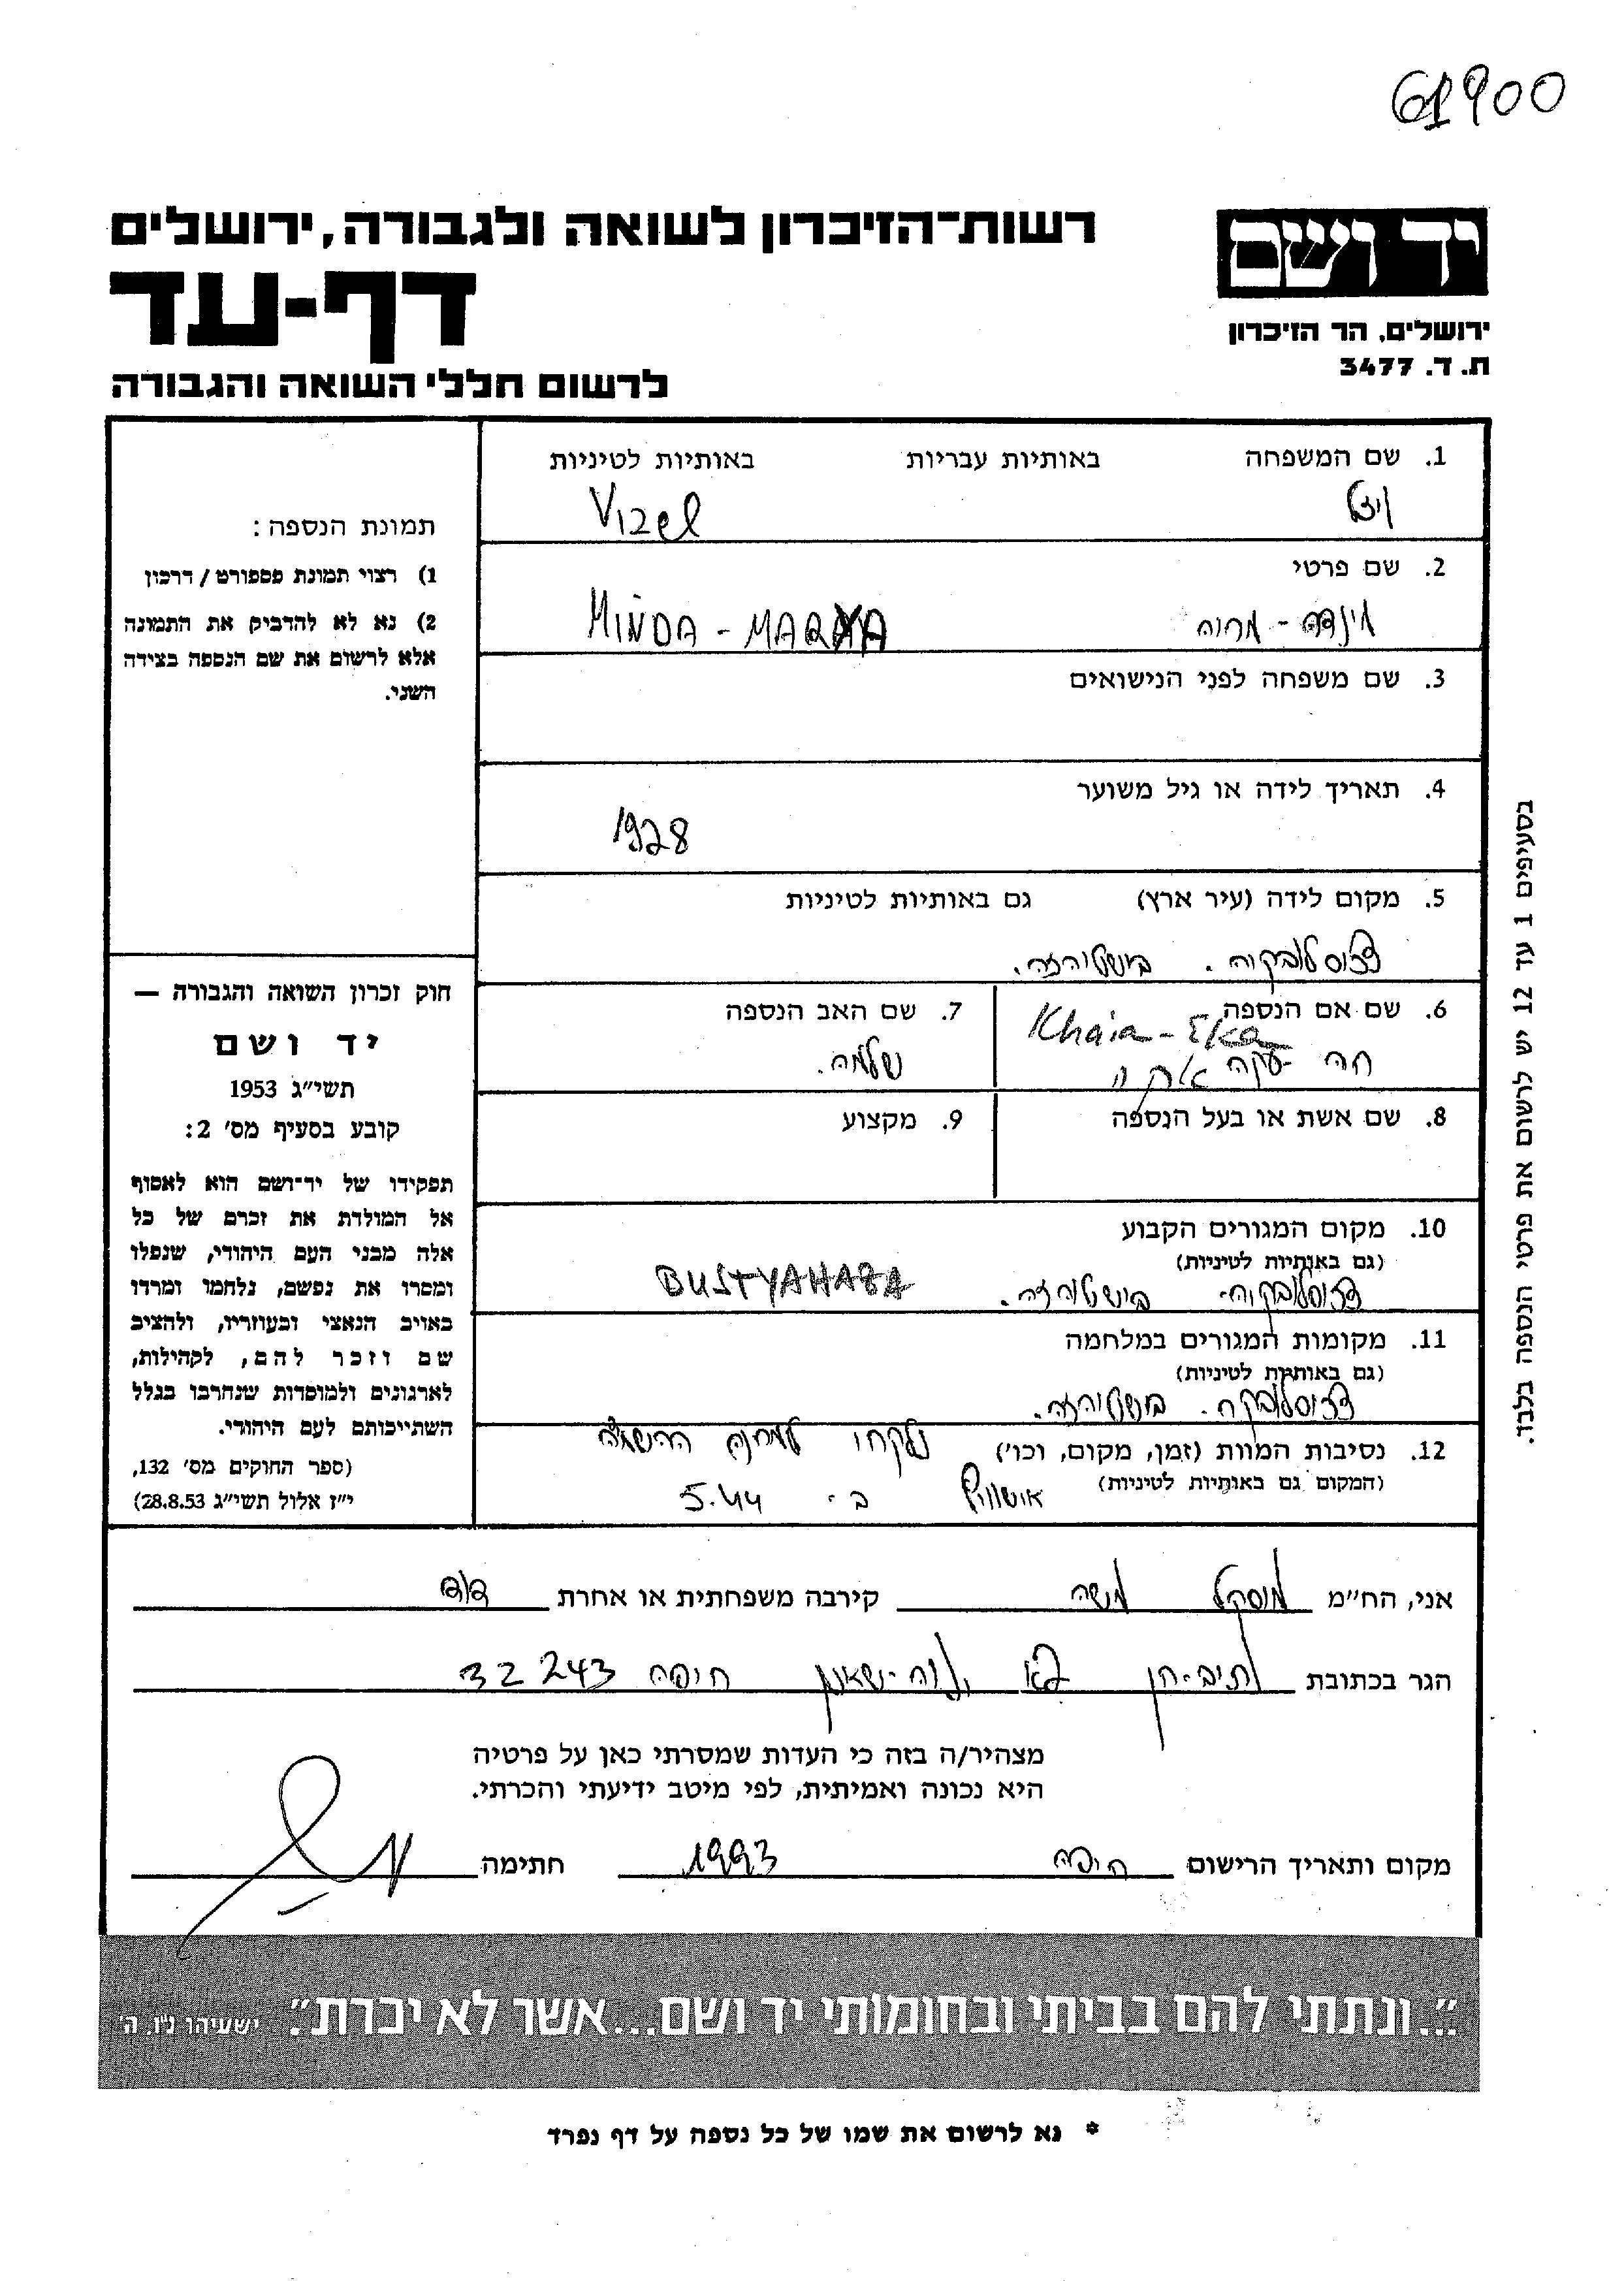 61900
רשות־הזיכרון לשואה ולגבורה, ירושלים
יד ושם
דף-עד
ירושלים, הר הזיכרון
ת. ד. 3477
לרשום חללי השואה והגבורה
1. שם המשפחה באותיות עבריות באותיות לטיניות
ויזל Vizel
2. שם פרטי
מינדה - מריה MINDA - MARYA
3. שם משפחה לפני הנישואים
4. תאריך לידה או גיל משוער
1928
5. מקום לידה (עיר ארץ) גם באותיות לטיניות
צ'כוסלובקיה. בושטינהזה.
6. שם אם הנספה
Khaia - Eka
חיה
7. שם האב הנספה
שלמה.
8. שם אשת או בעל הנספה
9. מקצוע
10. מקום המגורים הקבוע
(גם באותיות לטיניות)
צ'כוסלובקיה. BUSTYAHAZA
11. מקומות המגורים במלחמה
(גם באותיות לטיניות)
צ'כוסלובקיה.
12. נסיבות המוות (זמן, מקום, וכו') נלקחו למחנה ההשמדה
(המקום גם באותיות לטיניות) אושוויץ ב- 5.44
תמונת הנספה:
1) רצוי תמונת פספורט / דרכון
2) נא לא להדביק את התמונה
אלא לרשום את שם הנספה בצידה
השני.
חוק זכרון השואה והגבורה —
יד ושם
תשי"ג 1953
קובע בסעיף מס' 2:
תפקידו של יד־ושם הוא לאסוף
אל המולדת את זכרם של כל
אלה מבני העם היהודי, שנפלו
ומסרו את נפשם, נלחמו ומרדו
באויב הנאצי ובעוזריו, ולהציב
שם וזכר להם, לקהילות,
לארגונים ולמוסדות שנחרבו בגלל
השתייכותם לעם היהודי.
(ספר החוקים מס' 132,
י"ז אלול תשי"ג 28.8.53)
בסעיפים 1 עד 12 יש לרשום את פרטי הנספה בלבד.
אני, הח"מ מוסקל משה קירבה משפחתית או אחרת דוד
הגר בכתובת נתיב-חן נוה-שאנן חיפה 32243
מצהיר/ה בזה כי העדות שמסרתי כאן על פרטיה
היא נכונה ואמיתית, לפי מיטב ידיעתי והכרתי.
מקום ותאריך הרישום חיפה 1993 חתימה
"...ונתתי להם בביתי ובחומותי יד ושם...אשר לא יכרת". ישעיהו נ"ו, ה'
* נא לרשום את שמו של כל נספה על דף נפרד